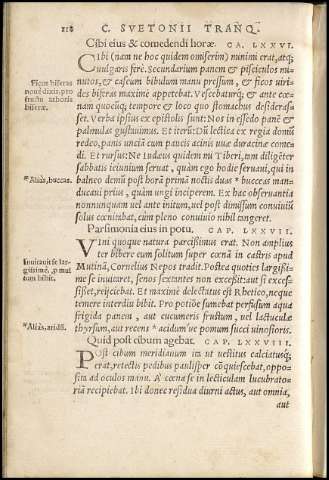 118 C. SVETONII TRANQ.
Cibi eius & comedendi horæ. CA. LXXVI.
Cibi (nam ne hoc quidem omiserim) minimi erat, atq;
uulgaris ferè. Secundarium panem & pisciculos mi-
nutos, & caseum bibulum manu pressum, & ficos uiri-
des biferas maximè appetebat. Vescebaturq; & ante cœ-
nam quocūq; tempore & loco quo stomachus desiderasset.
Verba ipsius ex epistolis sunt: Nos in essedo panē &
palmulas gustauimus. Et iterū: Dū lectica ex regia domū
redeo, panis unciā cum paucis acinis uuæ duracinæ come-
di. Et rursus: Ne Iudæus quidem mi Tiberi, tam diligēter
sabbatis ieiunium seruat, quàm ego hodie seruaui, qui in
balneo demū post horā primā noctis duas * bucceas man-
ducaui prius, quàm ungi inciperem. Ex hac obseruantia
nonnunquam uel ante initum, uel post dimissum conuiuiū
solus cœnitabat, cùm pleno conuiuio nihil tangeret.
Parsimonia eius in potu. CAP. LXXVII.
Vini quoque natura parcissimus erat. Non amplius
ter bibere eum solitum super cœnā in castris apud
Mutinā, Cornelius Nepos tradit. Postea quoties largissi-
me se inuitaret, senos sextantes non excessit: aut si exces-
sisset, reijciebat. Et maximè delectatus est Rhetico, neque
temere interdiu bibit. Pro potiōe sumebat perfusum aqua
frigida panem, aut cucumeris frustum, uel lactuculæ
thyrsum, aut recens * acidum'ue pomum succi uinosioris.
Quid post cibum agebat. CAP. LXXVIII.
Post cibum meridianum ita ut uestitus calciatusq;
erat, retectis pedibus paulisper cōquiescebat, oppo-
sita ad oculos manu. A' cœna se in lecticulam lucubrato-
riā recipiebat. Ibi donec residua diurni actus, aut omnia,
aut
Ficos biferas
* Alias, buccas.
* Alias, aridū.